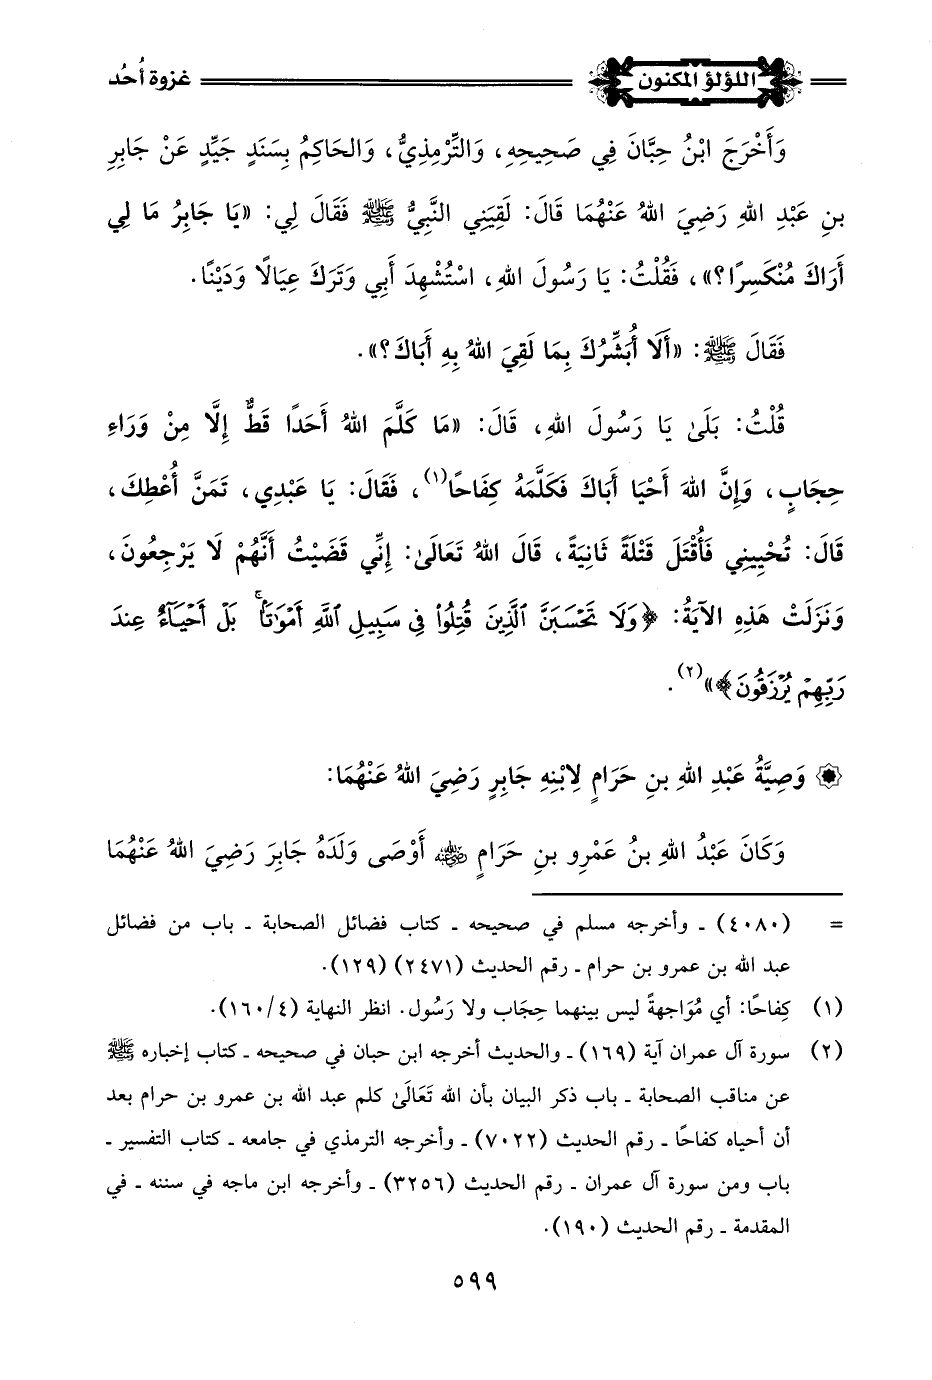 اللؤلؤ المكنون غزوة أُحُد
وَأَخْرَجَ ابْنُ حِبَّانَ فِي صَحِيحِهِ، وَالتِّرْمِذِيُّ، وَالحَاكِمُ بِسَنَدٍ جَيِّدٍ عَنْ جَابِرِ
بنِ عَبْدِ اللهِ رَضِيَ اللهُ عَنْهُمَا قَالَ: لَقِيَنِي النَّبِيُّ ﷺ فَقَالَ لِي: «يَا جَابِرُ مَا لِي
أَرَاكَ مُنْكَسِرًا؟»، فَقُلْتُ: يَا رَسُولَ اللهِ، اسْتُشْهِدَ أَبِي وَتَرَكَ عِيَالًا وَدَيْنًا.
فَقَالَ ﷺ: «أَلَا أُبَشِّرُكَ بِمَا لَقِيَ اللهُ بِهِ أَبَاكَ؟».
قُلْتُ: بَلَىٰ يَا رَسُولَ اللهِ، قَالَ: «مَا كَلَّمَ اللهُ أَحَدًا قَطُّ إِلَّا مِنْ وَرَاءِ
حِجَابٍ، وَإِنَّ اللهَ أَحْيَا أَبَاكَ فَكَلَّمَهُ كِفَاحًا(١)، فَقَالَ: يَا عَبْدِي، تَمَنَّ أُعْطِكَ،
قَالَ: تُحْيِينِي فَأُقْتَلَ قَتْلَةً ثَانِيَةً، قَالَ اللهُ تَعَالَىٰ: إِنِّي قَضَيْتُ أَنَّهُمْ لَا يَرْجِعُونَ،
وَنَزَلَتْ هَذِهِ الآيَةُ: ﴿وَلَا تَحْسَبَنَّ ٱلَّذِينَ قُتِلُوا۟ فِى سَبِيلِ ٱللَّهِ أَمْوَٰتًۢا ۚ بَلْ أَحْيَآءٌ عِندَ
رَبِّهِمْ يُرْزَقُونَ﴾»(٢).
وَصِيَّةُ عَبْدِ اللهِ بنِ حَرَامٍ لِابْنِهِ جَابِرٍ رَضِيَ اللهُ عَنْهُمَا:
وَكَانَ عَبْدُ اللهِ بنُ عَمْرِو بنِ حَرَامٍ رضي الله عنه أَوْصَى وَلَدَهُ جَابِرَ رَضِيَ اللهُ عَنْهُمَا
= (٤٠٨٠) ـ وأخرجه مسلم في صحيحه ـ كتاب فضائل الصحابة ـ باب من فضائل
عبد الله بن عمرو بن حرام ـ رقم الحديث (٢٤٧١) (١٢٩).
(١) كِفاحًا: أي مُوَاجهةً ليس بينهما حِجَاب ولا رَسُول. انظر النهاية (١٦٠/٤).
(٢) سورة آل عمران آية (١٦٩) ـ والحديث أخرجه ابن حبان في صحيحه ـ كتاب إخباره ﷺ
عن مناقب الصحابة ـ باب ذكر البيان بأن الله تَعَالَىٰ كلم عبد الله بن عمرو بن حرام بعد
أن أحياه كفاحًا ـ رقم الحديث (٧٠٢٢) ـ وأخرجه الترمذي في جامعه ـ كتاب التفسير ـ
باب ومن سورة آل عمران ـ رقم الحديث (٣٢٥٦) ـ وأخرجه ابن ماجه في سننه ـ في
المقدمة ـ رقم الحديث (١٩٠).
٥٩٩